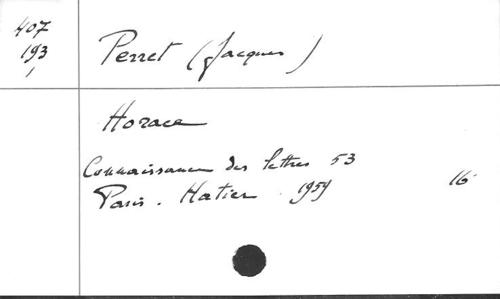 407
193
1
Perret (Jacques)
Horace
Connaissance des lettres 53
Paris. Hatier. 1959 16°